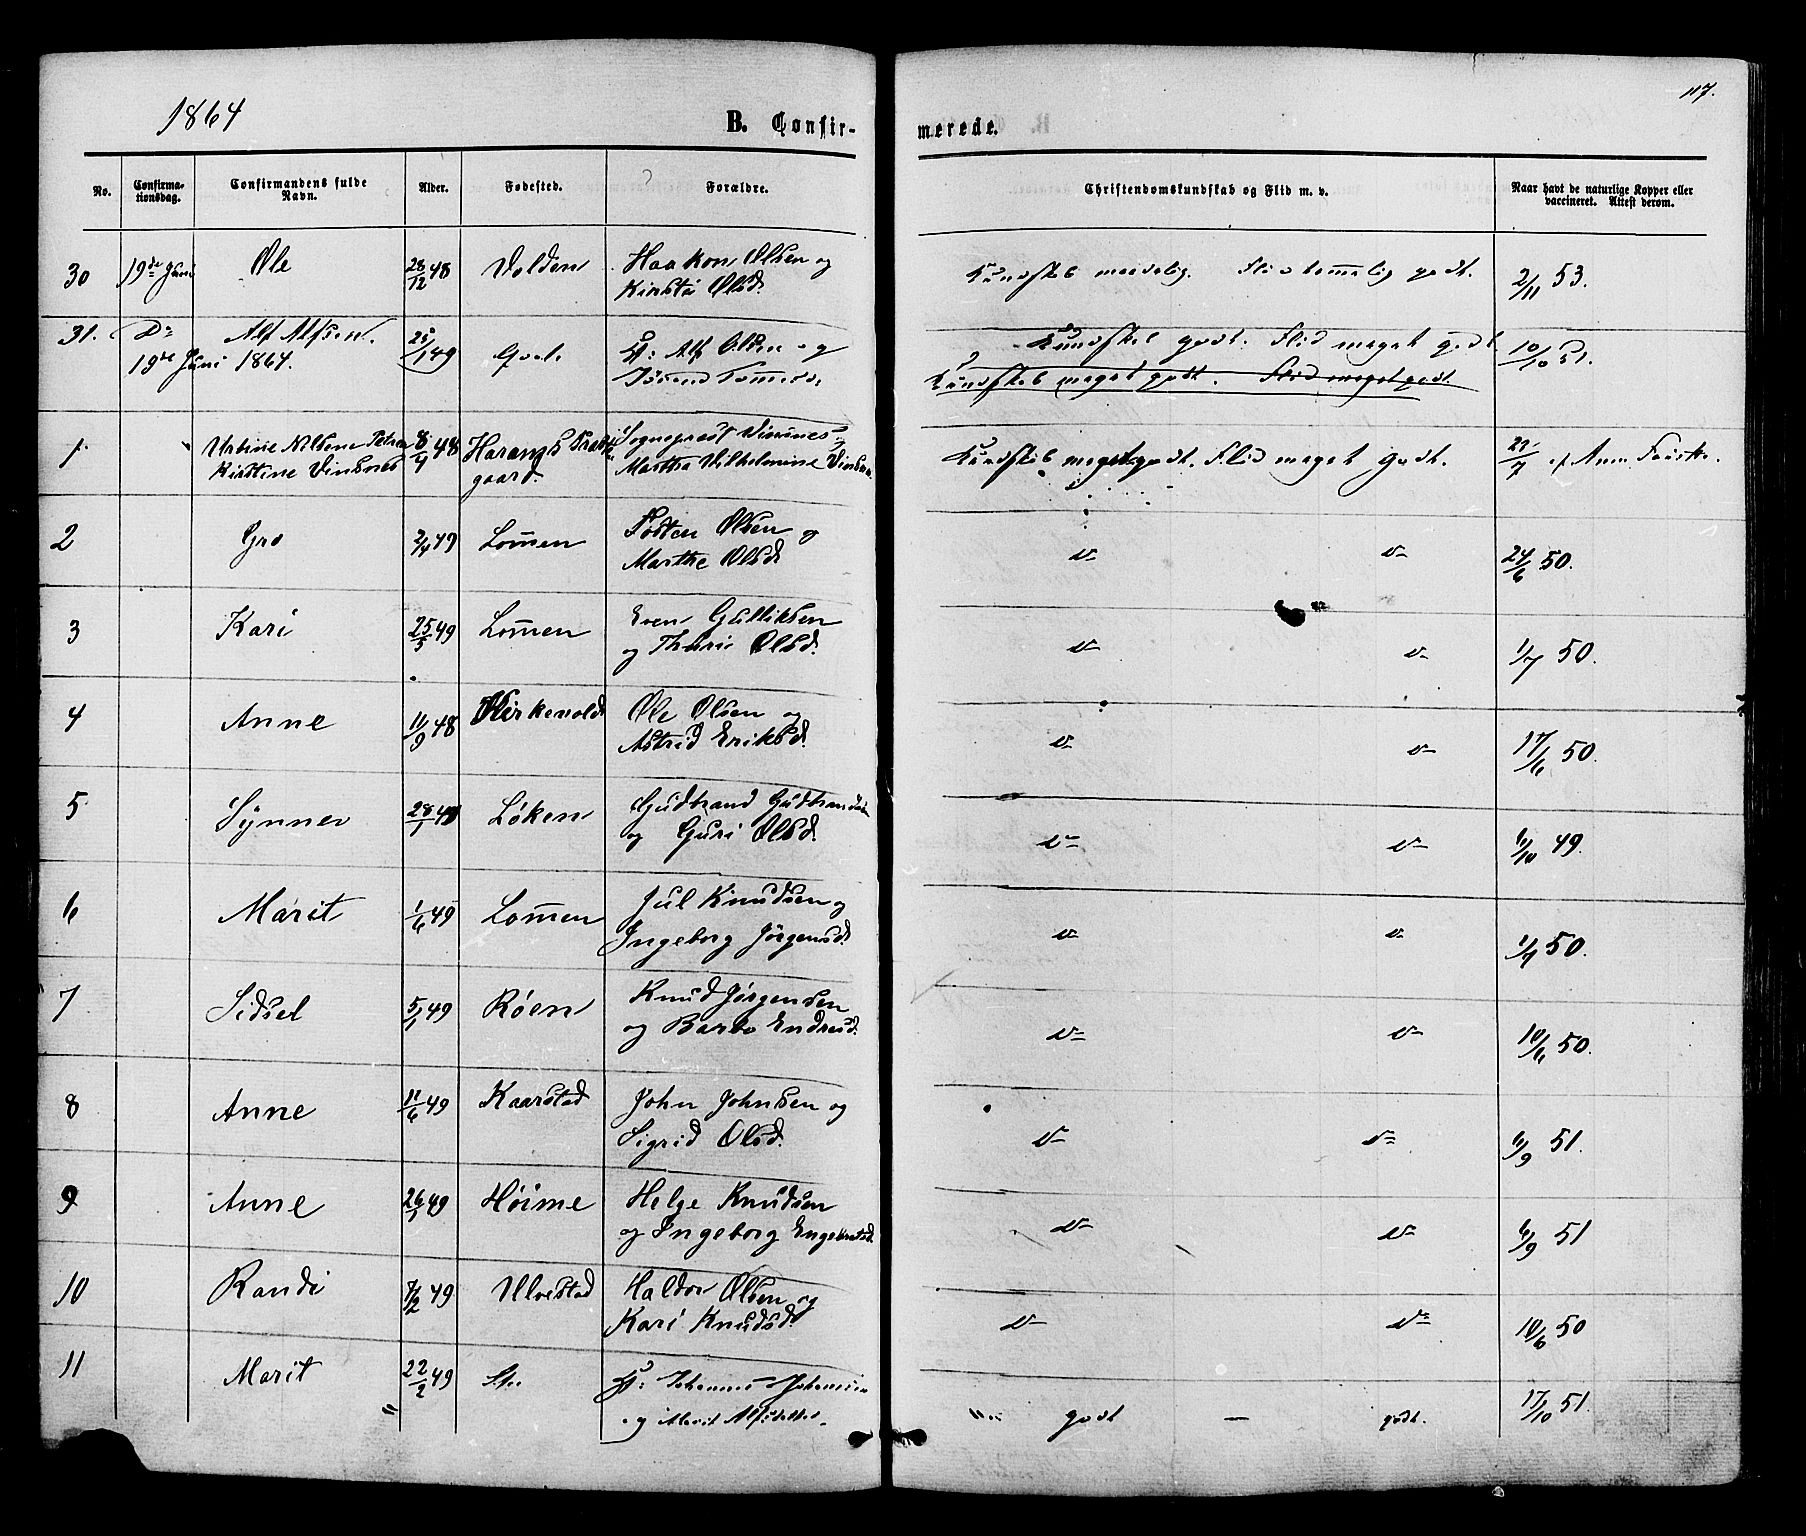 117.
1864
B. Confir- merede.
No. Confirma-tionsdag. Confirmandens fulde Navn. Alder. Fødested. Forældre. Christendomskundskab og Flid m. v. Naar havt de naturlige Kopper eller vaccineret. Attest derom.
30 19de Juni Ole 28/12 48 Volden Haakon Olsen og
Kirsti Olsd. Kundskab maadelig. Flid temmelig godt. 2/11 53.
31. Do Alf Alfsen. 25/1 49 Alf Olsen og Kundskab godt. Flid meget godt 10/10 51.
19de Juni 1864.
Kundskab meget godt. Flid meget godt
1 Nilsine Petrea 8/4 48 Harams Præste Sogneprest Vinsnes
Kirstine Vinsnes gaard. Martha Vilhelmine Vinsnes Kundskab meget godt. Flid meget godt.
2 Gro 2/4 49 Lomen Tosten Olsen og
Marthe Olsd. D- D- 24/6 50.
3 Kari 25/5 49 Lomen Even Gulliksen
og Thuri Olsd. D- D- 1/7 50.
4 Anne 11/9 48 Ole Olsen og
Astrid Eriksd. D- D- 17/6 50.
5 Synnev 28/1 49 Løken Gudbrand Gudbrandsen
og Guri Olsd. D- D- 6/10 49.
6 Marit 1/6 49 Lomen Jul Knudsen og
Ingeborg Jørgensd. D- D- 1/7 50.
7 Sidsel 5/1 49 Røen Knud Jørgensen
og Barbo Endresd. D- D- 10/6 50.
8 Anne 11/6 49 Kaarstad John Johnsen og
Sigrid Olsd. D- D- 6/9 51.
9 Anne 26/1 49 Høime Helge Knudsen
og Ingeborg Engebretsd. D- D- 6/9 51
10 Randi 7/2 49 Ulvestad Haldor Olsen og
Kari Knudsd. D- D- 10/6 50
11 Marit 22/2 49 Johannes Johannesen
og Marit Alfsdatter. godt — godt. 17/10 51.